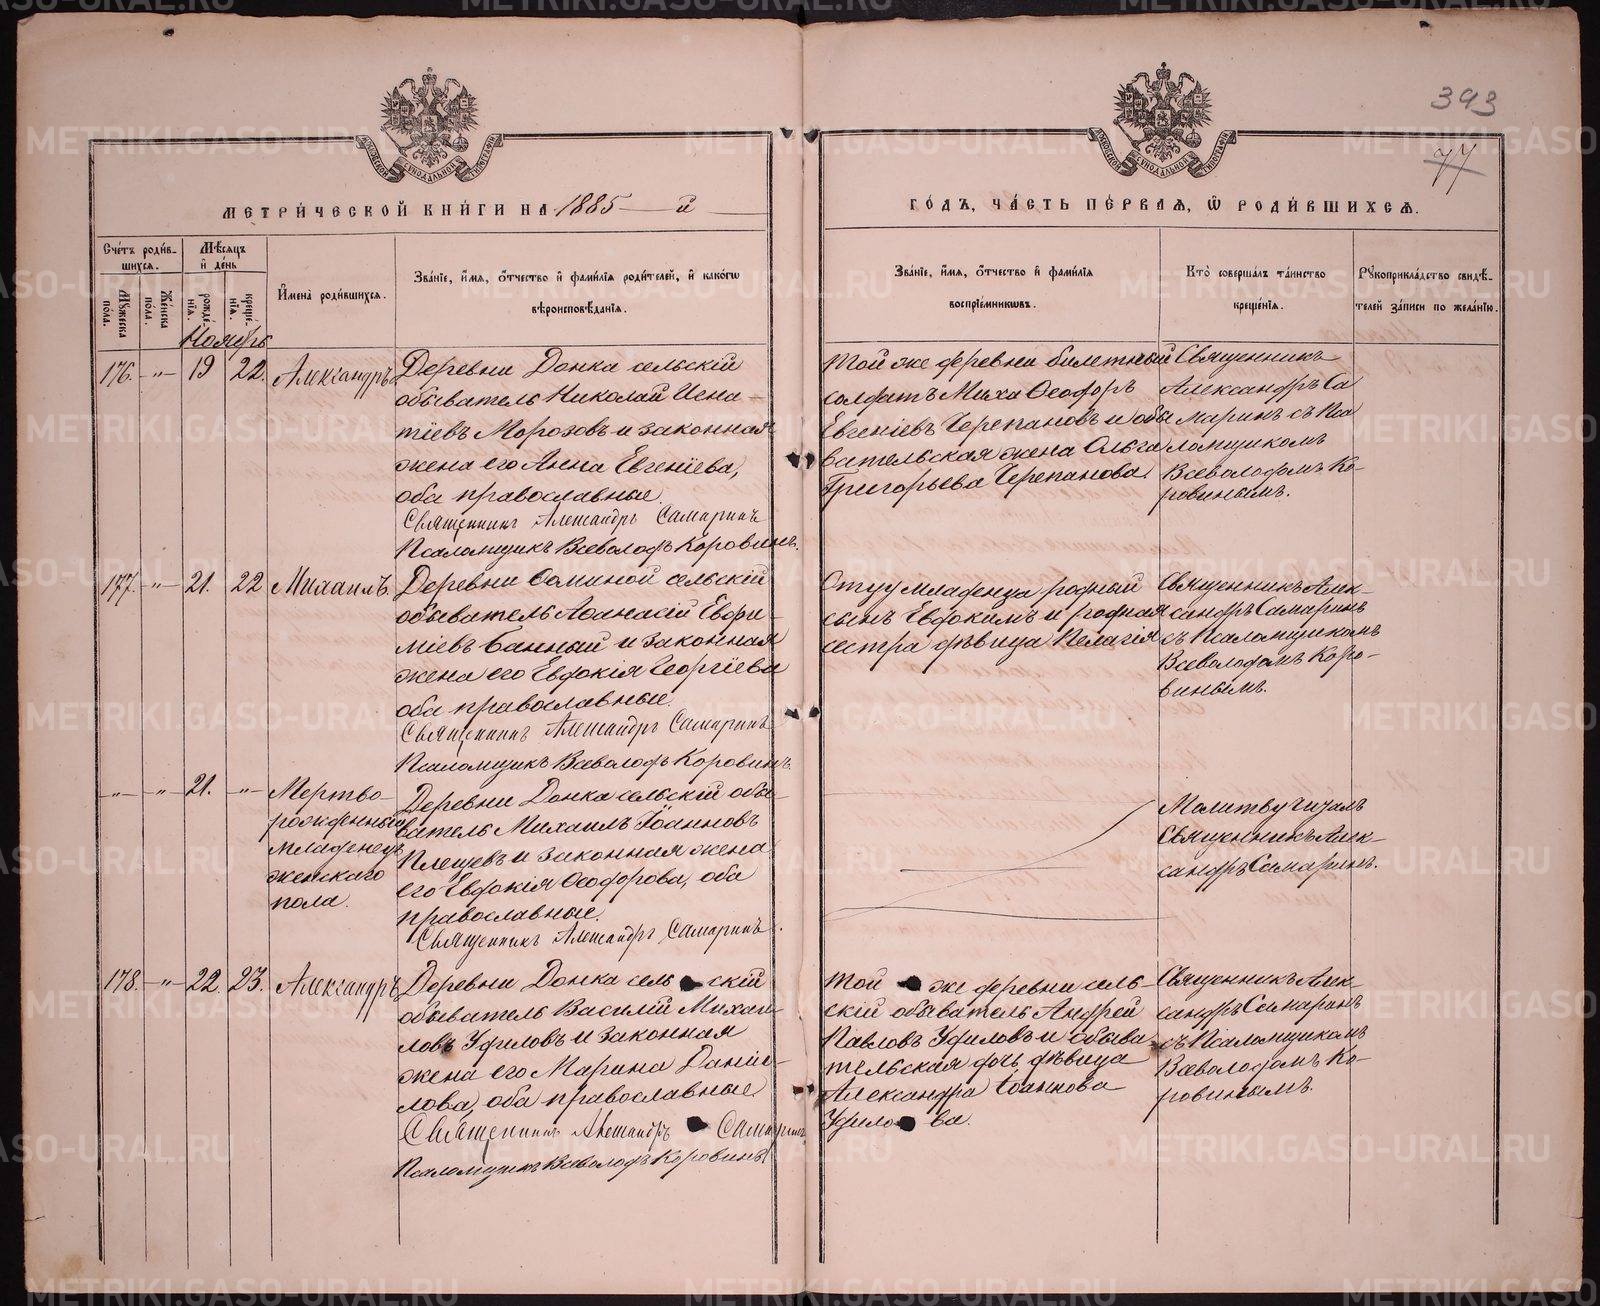 393
77
МЕТРИ́ЧЕСКОЙ КНИ́ГИ НА 1885 й
ГО́ДЪ, ЧА́СТЬ ПЕ́РВАѦ, Ѽ РОДИ́ВШИХСѦ.
Сче́тъ роди́в-
шихсѧ.
Мѣ́сѧцъ
и҆ де́нь
Мꙋ́жеска пола.
Же́нска пола.
рожде́нїѧ.
креще́нїѧ.
И҆мена̀ роди́вшихсѧ.
Зва́нїе, и҆́мѧ, ѻ҆́тчество и҆ фами́лїѧ роди́телей, и҆ како́гѡ
вѣроисповѣ́данїѧ.
Зва́нїе, и҆́мѧ, ѻ҆́тчество и҆ фами́лїѧ
воспрїе́мникѡвъ.
Кто̀ соверша́лъ та́инство
креще́нїѧ.
Рꙋкоприкла́дство свидѣ́-
телей за́писи по жела́нїю.
Ноябрь
176. -"- 19 22. Александръ
Деревни Донка сельскій
обыватель Николай Игна-
тіевъ Морозовъ и законная
жена его Анна Евгеніева,
оба православные.
Священникъ Александръ Самаринъ
Псаломщикъ Всеволодъ Коровинъ.
Той же деревни билетный
солдатъ Ѳеодоръ
Евгеніевъ Черепановъ и обы
вательская жена Ольга
Григорьева Черепанова.
Священникъ
Александръ Са
маринъ съ Пса
ломщикомъ
Всеволодомъ Ко-
ровинымъ.
177. -"- 21. 22 Михаилъ.
Деревни Ѳоминой сельскій
обыватель Аѳанасій Евфи-
міевъ Банный и законная
жена его Евдокія Георгіева
оба православные.
Священникъ Александръ Самаринъ
Псаломщикъ Всеволодъ Коровинъ.
Отцу младенца родный
сынъ Евдокимъ и родная
сестра дѣвица Пелагія
Священникъ Алек-
сандръ Самаринъ
съ Псаломщикомъ
Всеволодомъ Коро-
винымъ.
-"- -"- 21. -"- Мертво-
рожденный
младенецъ
женскаго
пола.
Деревни Донка сельскій обы-
ватель Михаилъ Іоанновъ
Плещевъ и законная жена
его Евдокія Ѳеодорова, оба
православные.
Священникъ Александръ Самаринъ.
Молитву читалъ
Священникъ Алек-
сандръ Самаринъ.
178. -"- 22. 23. Александръ
Деревни Донка сельскій
обыватель Василій Михаи-
ловъ Уфиловъ и законная
жена его Марина Даніи-
лова, оба православные
Священникъ Александръ Самаринъ
Псаломщикъ Всеволодъ Коровинъ
Той же деревни сель-
скій обыватель Андрей
Павловъ Уфиловъ и обыва-
тельская дочь дѣвица
Александра Іоаннова
Уфилова.
Священникъ Алек-
сандръ Самаринъ
съ Псаломщикомъ
Всеволодомъ Ко-
ровинымъ.
METRIKI.GASO-URAL.RU